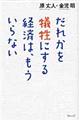 原 丈人・金児 昭
だれかを
犠牲にする
経済は、もう
いらない